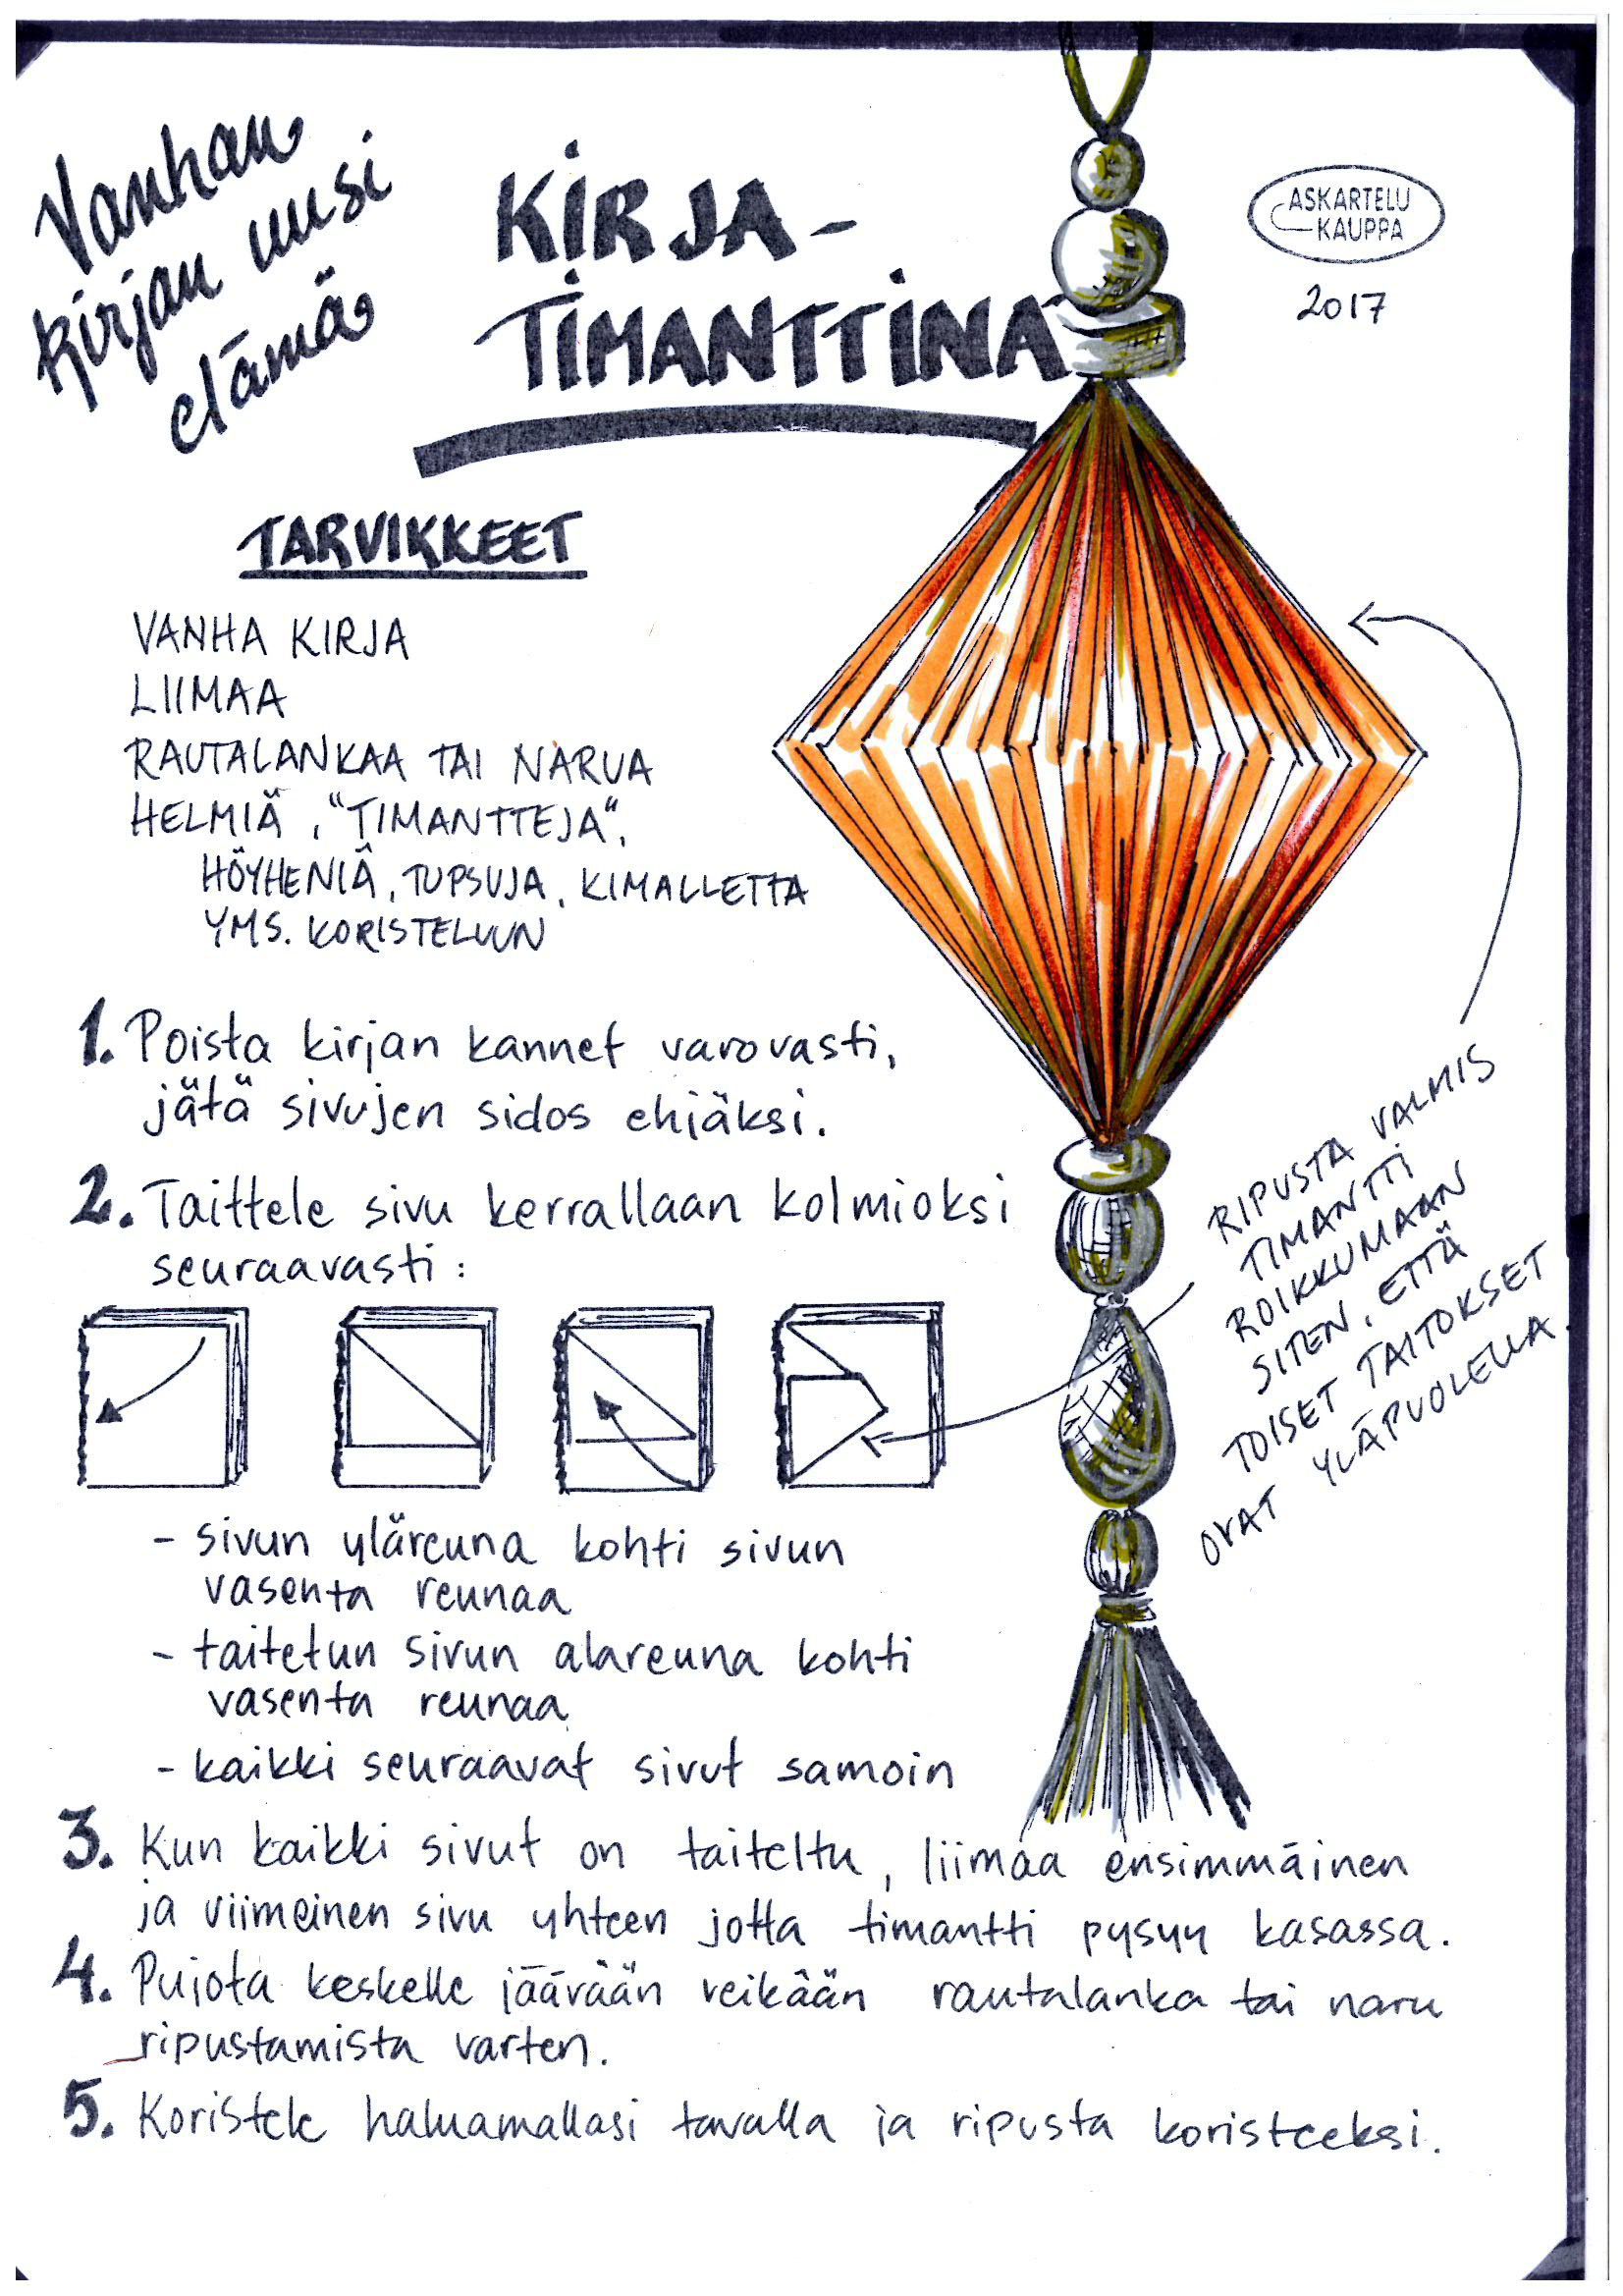 Vanhan
kirjan uusi
elämä
KIRJA-
TIMANTTINA
ASKARTELU
KAUPPA
2017
TARVIKKEET
VANHA KIRJA
LIIMAA
RAUTALANKAA TAI NARUA
HELMIÄ, "TIMANTTEJA",
HÖYHENIÄ, TUPSUJA, KIMALLETTA
YMS. KORISTELUUN
1. Poista kirjan kannet varovasti,
jätä sivujen sidos ehjäksi.
2. Taittele sivu kerrallaan kolmioksi
seuraavasti:
RIPUSTA VALMIS
TIMANTTI
ROIKKUMAAN
SITEN, ETTÄ
TOISET TAITOKSET
OVAT YLÄPUOLELLA.
- sivun yläreuna kohti sivun
vasenta reunaa
- taitetun sivun alareuna kohti
vasenta reunaa
- kaikki seuraavat sivut samoin
3. Kun kaikki sivut on taiteltu, liimaa ensimmäinen
ja viimeinen sivu yhteen jotta timantti pysyy kasassa.
4. Pujota keskelle jäävään reikään rautalanka tai naru
ripustamista varten.
5. Koristele haluamallasi tavalla ja ripusta koristeeksi.